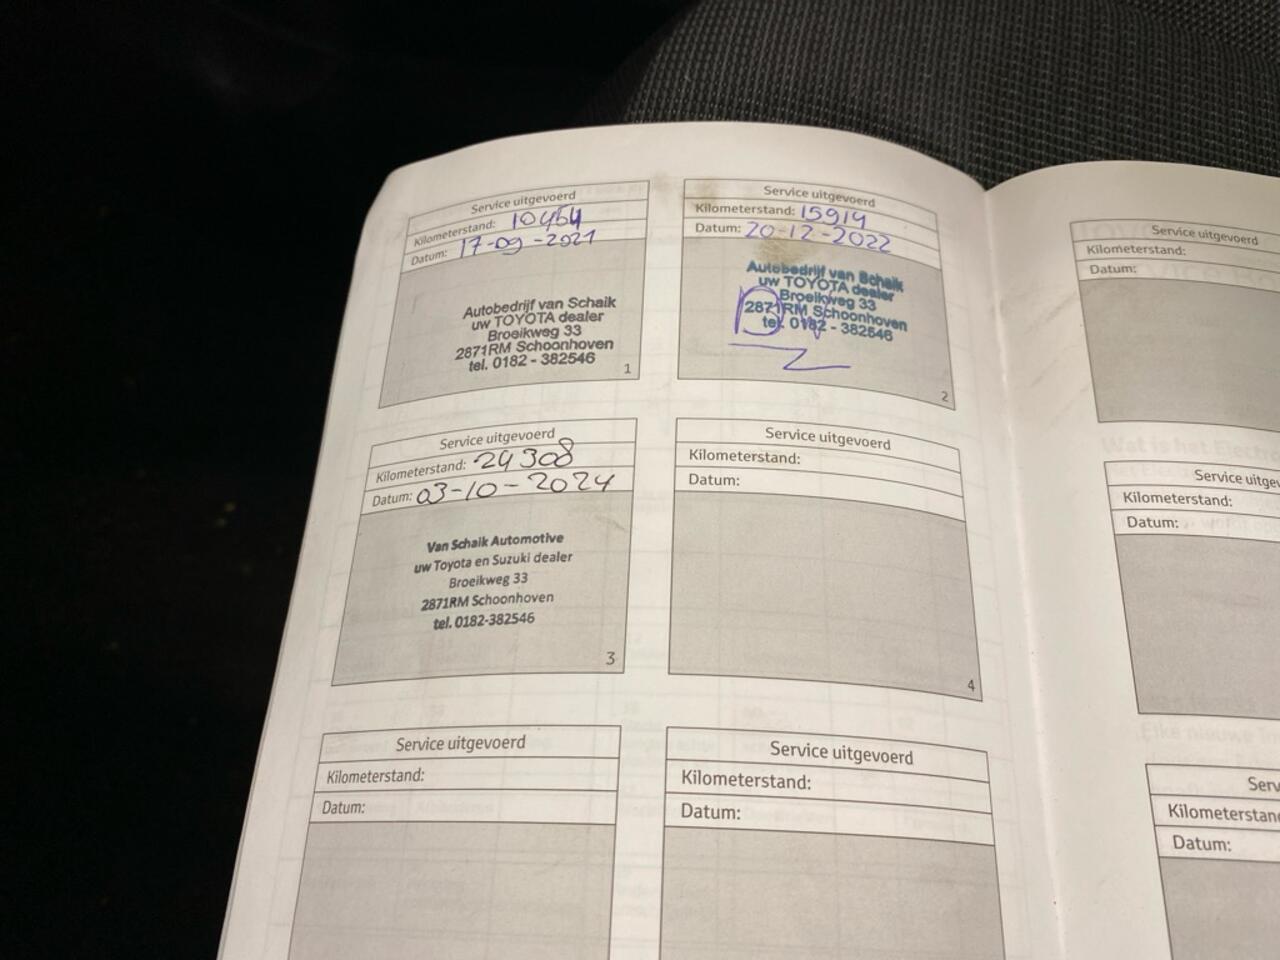 Service uitgevoerd
Kilometerstand: 10454
Datum: 17-09-2021
Autobedrijf van Schaik
uw TOYOTA dealer
Broeikweg 33
2871RM Schoonhoven
tel. 0182 - 382546
1
Service uitgevoerd
Kilometerstand: 15914
Datum: 20-12-2022
Autobedrijf van Schaik
uw TOYOTA dealer
Broeikweg 33
2871RM Schoonhoven
tel. 0182 - 382546
2
Service uitgevoerd
Kilometerstand: 24308
Datum: 03-10-2024
Van Schaik Automotive
uw Toyota en Suzuki dealer
Broeikweg 33
2871RM Schoonhoven
tel. 0182-382546
3
Service uitgevoerd
Kilometerstand:
Datum:
4
Service uitgevoerd
Kilometerstand:
Datum:
Service uitgevoerd
Kilometerstand:
Datum:
Service uitgevoerd
Kilometerstand:
Datum:
Service
Kilometerstand:
Datum:
Kilometerstand
Datum: